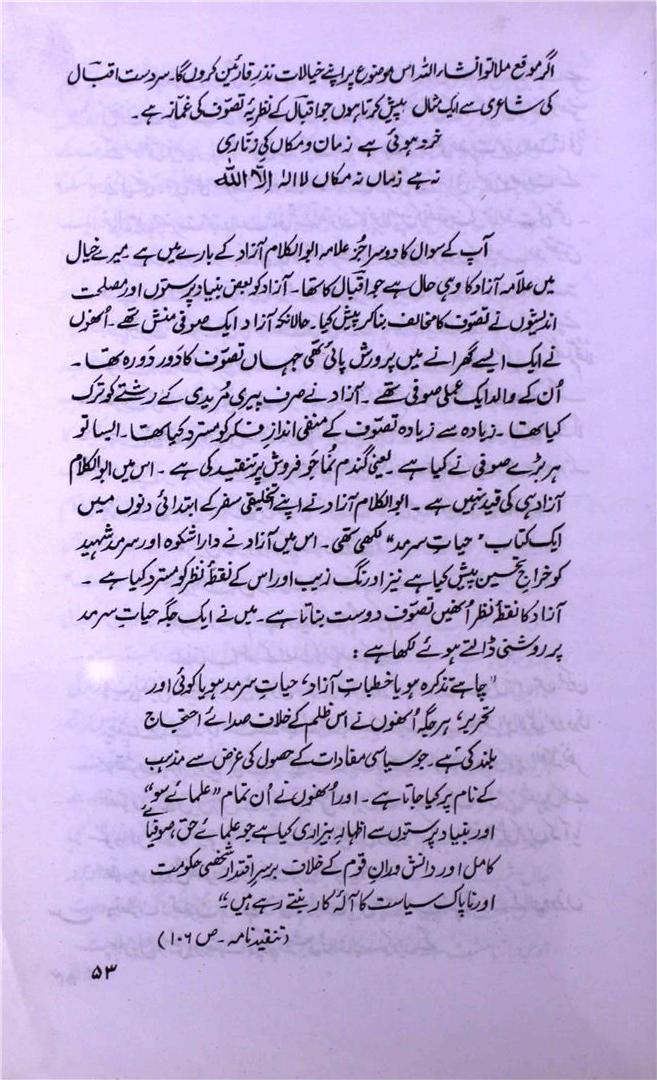 اگر موقع ملا تو انشاء اللہ اس موضوع پر اپنے خیالات نذر قارئین کروں گا۔ سردست اقبال
کی شاعری سے ایک مثال پیش کرتا ہوں جو اقبال کے نظریۂ تصوّف کی غماز ہے۔
خرد ہوئی ہے زمان و مکاں کی زنّاری
نہ ہے زماں نہ مکاں لا الہ الّا اللہ
آپ کے سوال کا دوسرا جُز علامہ ابوالکلام آزاد کے بارے میں ہے میرے خیال
میں علاّمہ آزاد کا وہی حال ہے جو اقبال کا تھا۔ آزاد کو بعض بنیاد پرستوں اور مصلحت
اندیشوں نے تصوّف کا مخالف بنا کر پیش کیا۔ حالانکہ آزاد ایک صوفی منش تھے۔ اُنھوں
نے ایک ایسے گھرانے میں پرورش پائی تھی جہاں تصوّف کا دَور دَورہ تھا۔
اُن کے والد ایک عملی صوفی تھے۔ آزاد نے صرف پیری مُریدی کے رشتے کو ترک
کیا تھا۔ زیادہ سے زیادہ تصوّف کے منفی اندازِ فکر کو مسترد کیا تھا۔ ایسا تو
ہر بڑے صوفی نے کیا ہے۔ یعنی گندم نُما جَو فروش پر تنقید کی ہے۔ اس میں ابوالکلام
آزاد ہی کی قید نہیں ہے۔ ابوالکلام آزاد نے اپنے تخلیقی سفر کے ابتدائی دنوں میں
ایک کتاب "حیاتِ سرمد" لکھی تھی۔ اس میں آزاد نے داراشکوہ اور سرمد شہید
کو خراجِ تحسین پیش کیا ہے نیز اورنگ زیب اور اس کے نقطۂ نظر کو مسترد کیا ہے۔
آزاد کا نقطۂ نظر اُنھیں تصوّف دوست بناتا ہے۔ میں نے ایک جگہ حیاتِ سرمد
پر روشنی ڈالتے ہوئے لکھا ہے:
"چاہے تذکرہ ہو یا خطباتِ آزاد، حیاتِ سرمد ہو یا کوئی اور
تحریر، ہر جگہ اُنھوں نے اس ظلم کے خلاف صدائے احتجاج
بلند کی ہے۔ جو سیاسی مفادات کے حصول کی غرض سے مذہب
کے نام پر کیا جاتا ہے۔ اور اُنھوں نے اُن تمام "علمائے سو"
اور بنیاد پرستوں سے اظہارِ بیزاری کیا ہے جو علمائے حق، صوفیائے
کامل اور دانش ورانِ قوم کے خلاف برسرِ اقتدار شخصی حکومت
اور ناپاک سیاست کا آلۂ کار بنتے رہے ہیں"۔
(تنقید نامہ۔ ص ۱۰۶)
۵۳